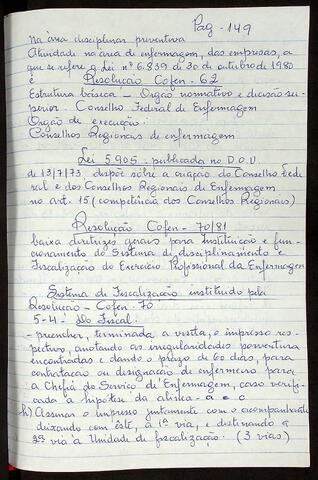 Pag - 149
na área disciplinar preventiva
Atividade na área de enfermagem, das empresas, a
que se refere a Lei nº 6.839 de 30 de outubro de 1980
é Resolução Cofen - 62
Estrutura básica - Orgão normativo e decisão su-
perior. Conselho Federal de Enfermagem
Orgão de execução:
Conselhos Regionais de enfermagem
Lei 5905 - publicada no D.O.U
de 13/7/73 dispõe sôbre a criação do Conselho Fede
ral e dos Conselhos Regionais de Enfermagem
no art. 15 (competência dos Conselhos Regionais)
Resolução Cofen - 70/81
baixa diretrizes gerais para Instituição e fun-
cionamento do Sistema de disciplinamento e
Fiscalização do Exercício Profissional da Enfermagem
Sistema de Fiscalização instituido pela
Resolução - Cofen - 70
5-4- Do Fiscal:
- preencher, terminada a visita, o impresso res-
pectivo, anotando as irregularidades porventura
encontradas e dando o prazo de 60 dias, para
contratação ou designação de enfermeiro para
a Chefia do Serviço de Enfermagem, caso verifi-
cada a hipótese da alínea - a e c
h) Assinar o impresso juntamente com o acompanhante
deixando com êste, a 1ª via, e destinando a
2ª via à Unidade de fiscalização. (3 vias)